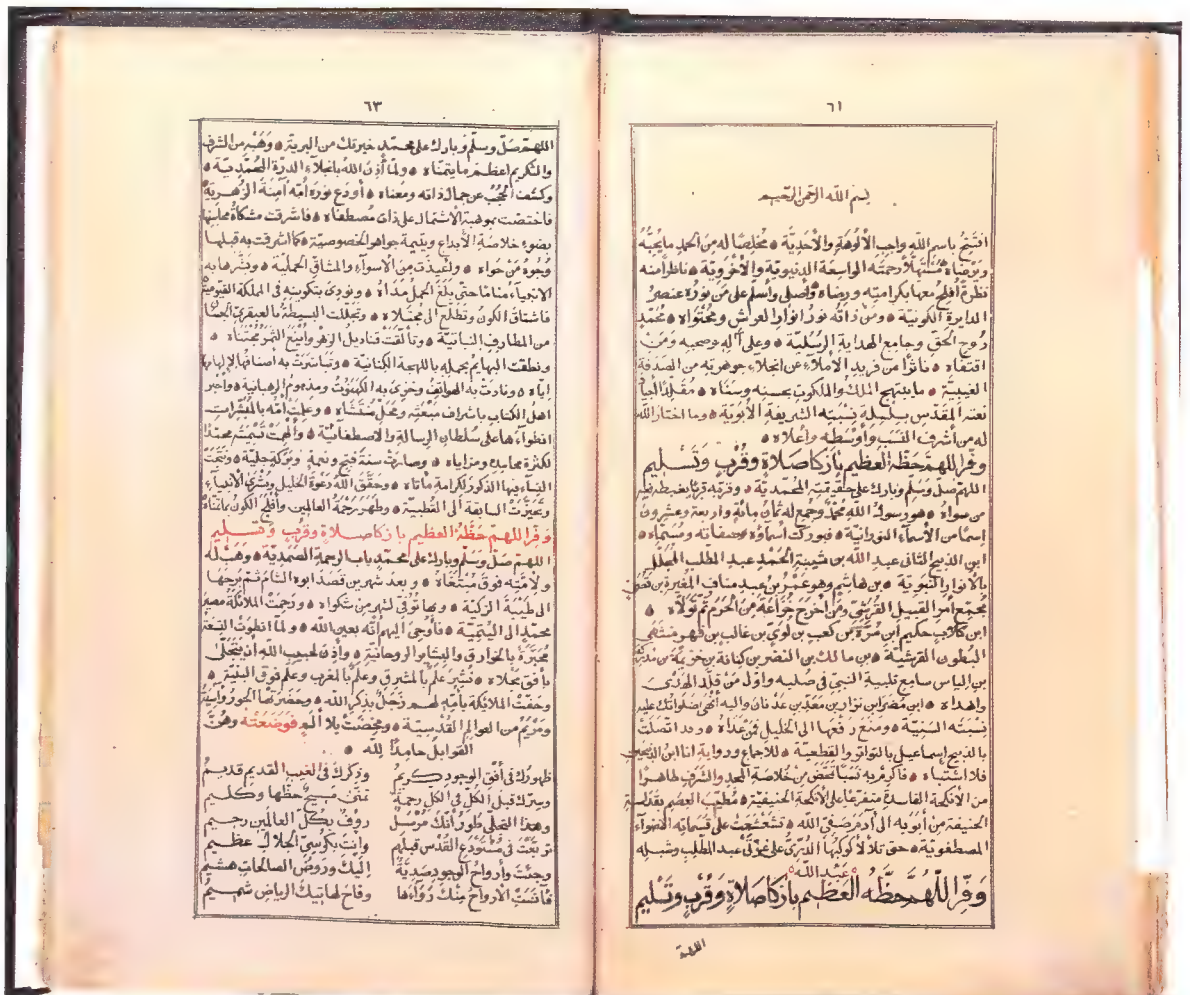 ٦١
بسم الله الرحمن الرحيم
افتتح باسم الله واجب الألوهة والأحدية ه مخلصا له من الحمد ما يحبه
ويرضاه ه مستهلا رحمته الواسعة الدنيوية والأخروية ه ناظرا منه
نظرة أفلح معها بكرامته ورضاه ه وأصلى وأسلم على من نوره عنصر
الدايرة الكونية ه ومن ذاته نور انوار العوالم ومحتواه ه محمد
روح الحق وجامع الهداية الرسلية ه وعلى آله وصحبه ومن
اقتفاه ه ناثرا من فريد الأملاء عن انجلاء جوهريته من الصدفة
الغيبية ه ما يبتهج الملك والملكوت بحسنه وسناه ه مقلدا أجياد
نعته المقدس بسلسلة نسبته الشريفة الأبوية ه وما اختار الله
له من أشرف النسب وأوسطه وأعلاه ه
وفر اللهم حظه العظيم بأزكا صلاة وقرب وتسليم
اللهم صل وسلم وبارك على حقيقته المحمدية ه وقربه قربا يغبطه فيه
من سواه ه هو رسول الله محمد وجمع له ثمان مائة واربعة وعشرون
اسما من الأسماء النورانية ه فبوركت أسماؤه وصفاته ومسماه ه
ابن الذبيح الثانى عبد الله بن شيبة الحمد عبد المطلب المجلل
بالأنوار النبوية ه بن هاشم وهو عمرو بن عبد مناف المغيرة بن قصي
مجمع امر القبيل القرشي ومن اخرج خزاعة من الحرم ثم تولاه ه
ابن كلاب حكيم ابن مرة بن كعب بن لوى بن غالب بن فهر منتهى
البطون القرشية ه بن مالك بن النضر بن كنانة بن خزيمة بن مدركة
بن الياس سامع تلبية النبي فى صلبه واول من قلد الهدى
واهداه ه ابن مضر ابن نزار بن معد بن عدنان واليه أنهى صلوانك عليه
نسبته السنية ه ومنع رفعها الى الخليل فمن عداه ه وقد اتصلت
بالذبيح اسماعيل بالتواتر والقطعية ه للاجماع ورواية انا ابن الذبيحين
فلا اشتباه ه فاكرم به نسبا تمحض من خلاصة المجد والشرف طاهرا
من الأنكحة الفاسدة متفرعا على الأنكحة الحنيفية ه مطيب العصم بقداسة
الحنيفة من أبويه الى آدم صفي الله ه تشعشعت على قسماته الأضواء
المصطفوية ه حتى تلألأ كوكبها الدرى على غرتى عبد المطلب وشبله
عبد الله
وفر اللهم حظه العظيم بأزكا صلاة وقرب وتسليم
اللهم
٦٣
اللهم صل وسلم وبارك على محمد خيرتك من البرية ه وهبه من الشرف
والتكريم اعظم ما يتمناه ه ولما أذن الله بانجلاء الدرة المحمدية ه
وكشف الحجب عن جمال ذاته ومعناه ه أودع نوره أمه آمنة الزهرية
فاختصت بموهبة الاشتمال على ذات مصطفاه ه فاشرقت مشكاة محاسنها
بضوء خلاصة الأبداع ويتيمة جواهر الخصوصية ه كما أشرقت به قبلها
وجوه من حواه ه وأعيذت من الاسواء والمشاق الحملية ه وبشرها به
الانبياء مناما حتى بلغ الحمل مداه ه ونودى بتكوينه فى المملكة القيومية
فاشتاق الكون وتطلع الى مجتلاه ه وتجللت البسيطة بالعبقرى الحسان
من المطارف النباتية ه وتألقت قناديل الزهر وأينع الثمر لمجتناه ه
ونطقت البهائم بحمله باللهجة الكنانية ه وتباشرت به أصنافها لإلهامها
اياه ه ونادت به الهواتف وخزى به الكهنوت ومذموم الرهبانية ه وأخبر
اهل الكتاب باشراف مبعثه ومحل منتشاه ه وعلمت أمه بالمبشرات
انطواءها على سلطان الرسالة والاصطفائية ه وألهمت تسميته محمدا
لكثرة محامده ومزاياه ه وصارت سنة فتح ونعمة وبركة جلية ه ونتجت
النساء فيها الذكور لكرامة مأتاه ه وحقق الله دعوة الخليل وبشرى الأنبياء
وتحيزت السابقة الى القطبية ه وظهر رحمة العالمين وأفلح الكون بما تمناه
وفر اللهم حظه العظيم بازكا صلاة وقرب وتسليم
اللهم صل وسلم وبارك على محمد باب الرحمة الصمدية ه وهب له
ولأمته فوق مبتغاه ه وبعد شهرين قصد ابوه الشام ثم يرجها
الى طيبة الزكية ه وبها توفى لشهر من شكواه ه ورحمت الملائكة مصير
محمد الى اليتمية ه فأوحى اليهم أنه بعين الله ه ولما انطوت التسعة
مخبرة بالخوارق والبشاير الروحانية ه وأذن لحبيب الله أن يتجلى
بأفق مجلاه ه نشر علم بالمشرق وعلم بالمغرب وعلم فوق البنية ه
وحفت الملائكة بأمه لهم زجل بذكر الله ه وحضرتها الحور وآسية
ومريم من العوالم القدسية ه ومخضت بلا ألم فوضعته وهوت
القوابل حامدا لله ه
ظهورك فى أفق الوجود كريم وذكرك فى الغيب القديم قديم
وسرك قبل الكل فى الكل رحمة تمنى مسيح حظها وكليم
وهذا التجلى طور أنك مرسل رؤف بكل العالمين رحيم
تربعت فى مستودع القدس قبلهم وانت بكرسي الجلال عظيم
وجئت وأرواح الوجود صدية إليك وروض الصالحات هشيم
فآنست الأرواح منك دواءها وفاح لهاتيك الرياض شميم